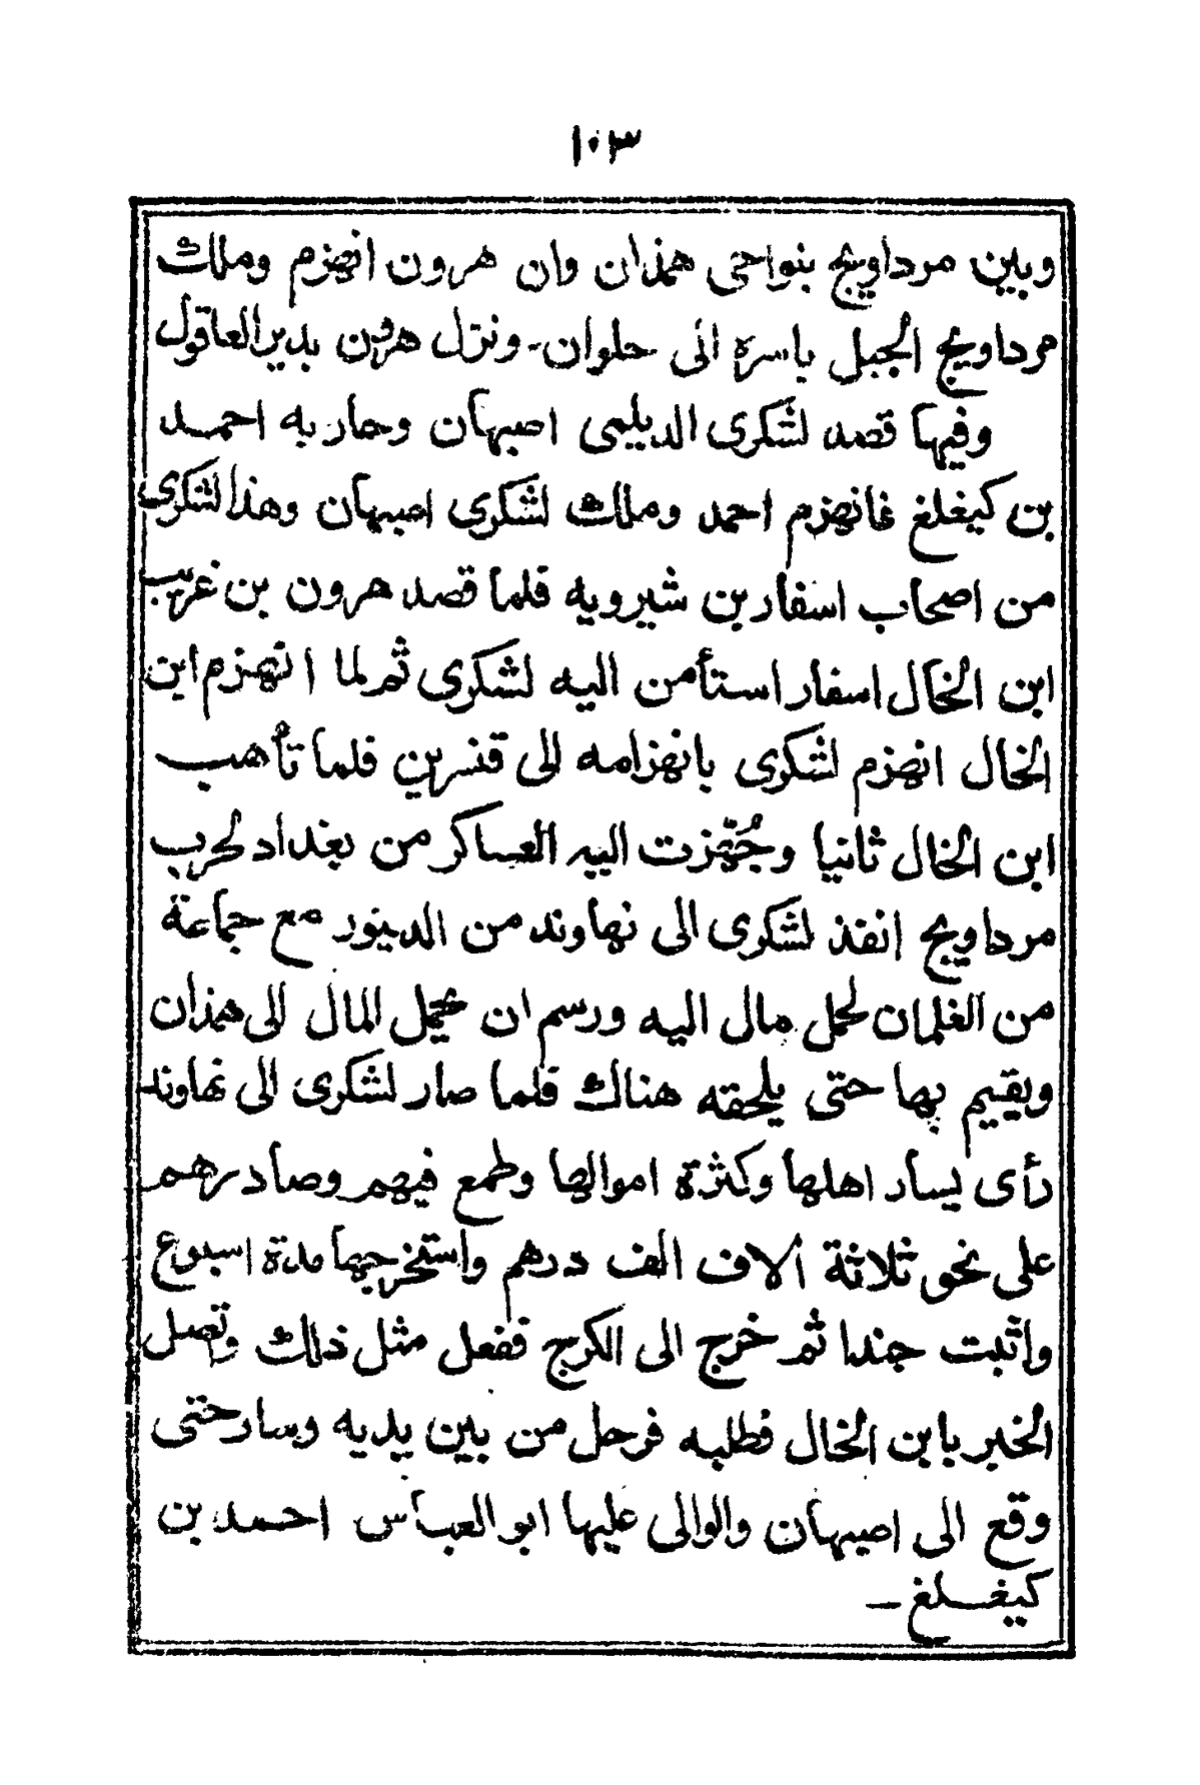 ١٠٣
وبين مرداويج بنواحى همذان وان هرون انهزم وملك
مرداويج الجبل باسره الى حلوان - ونزل هرون بديرالعاقول
وفيها قصد لشكرى الديلمى اصبهان وحاربه احمد
بن كيغلغ فانهزم احمد وملك لشكرى اصبهان وهذا لشكرى
من اصحاب اسفار بن شيرويه فلما قصد هرون بن غريب
ابن الخال اسفار استأمن اليه لشكرى ثم لما انهزم ابن
الخال انهزم لشكرى بانهزامه الى قنسرين فلما تأهب
ابن الخال ثانيا وجُهّزت اليه العساكر من بغداد لحرب
مرداويج انفذ لشكرى الى نهاوند من الدينور مع جماعة
من الغلمان لحمل مال اليه ورسم ان يحمل المال الى همذان
ويقيم بها حتى يلحقه هناك فلما صار لشكرى الى نهاوند
رأى يسار اهلها وكثرة اموالها وطمع فيهم وصادرهم
على نحو ثلاثة آلاف الف درهم واستخرجها مدة اسبوع
واثبت جندا ثم خرج الى الكرج ففعل مثل ذلك وتصل
الخبر بابن الخال فطلبه فرحل من بين يديه وسار حتى
وقع الى اصبهان والوالى عليها ابو العباس احمد بن
كيغلغ -